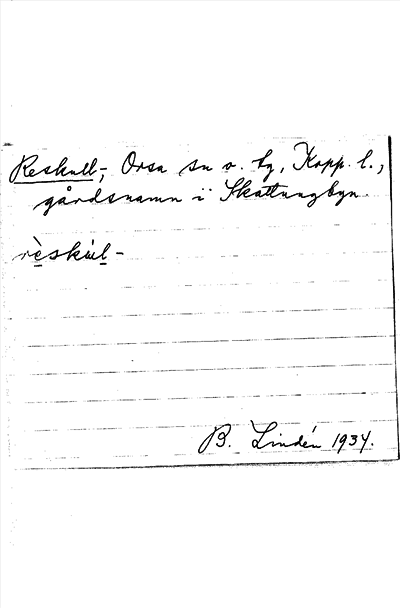 Reskull-, Orsa sn o. tg, Kopp. l.,
gårdsnamn i Skattungbyn.
rèskùl-
B. Lindén 1934.